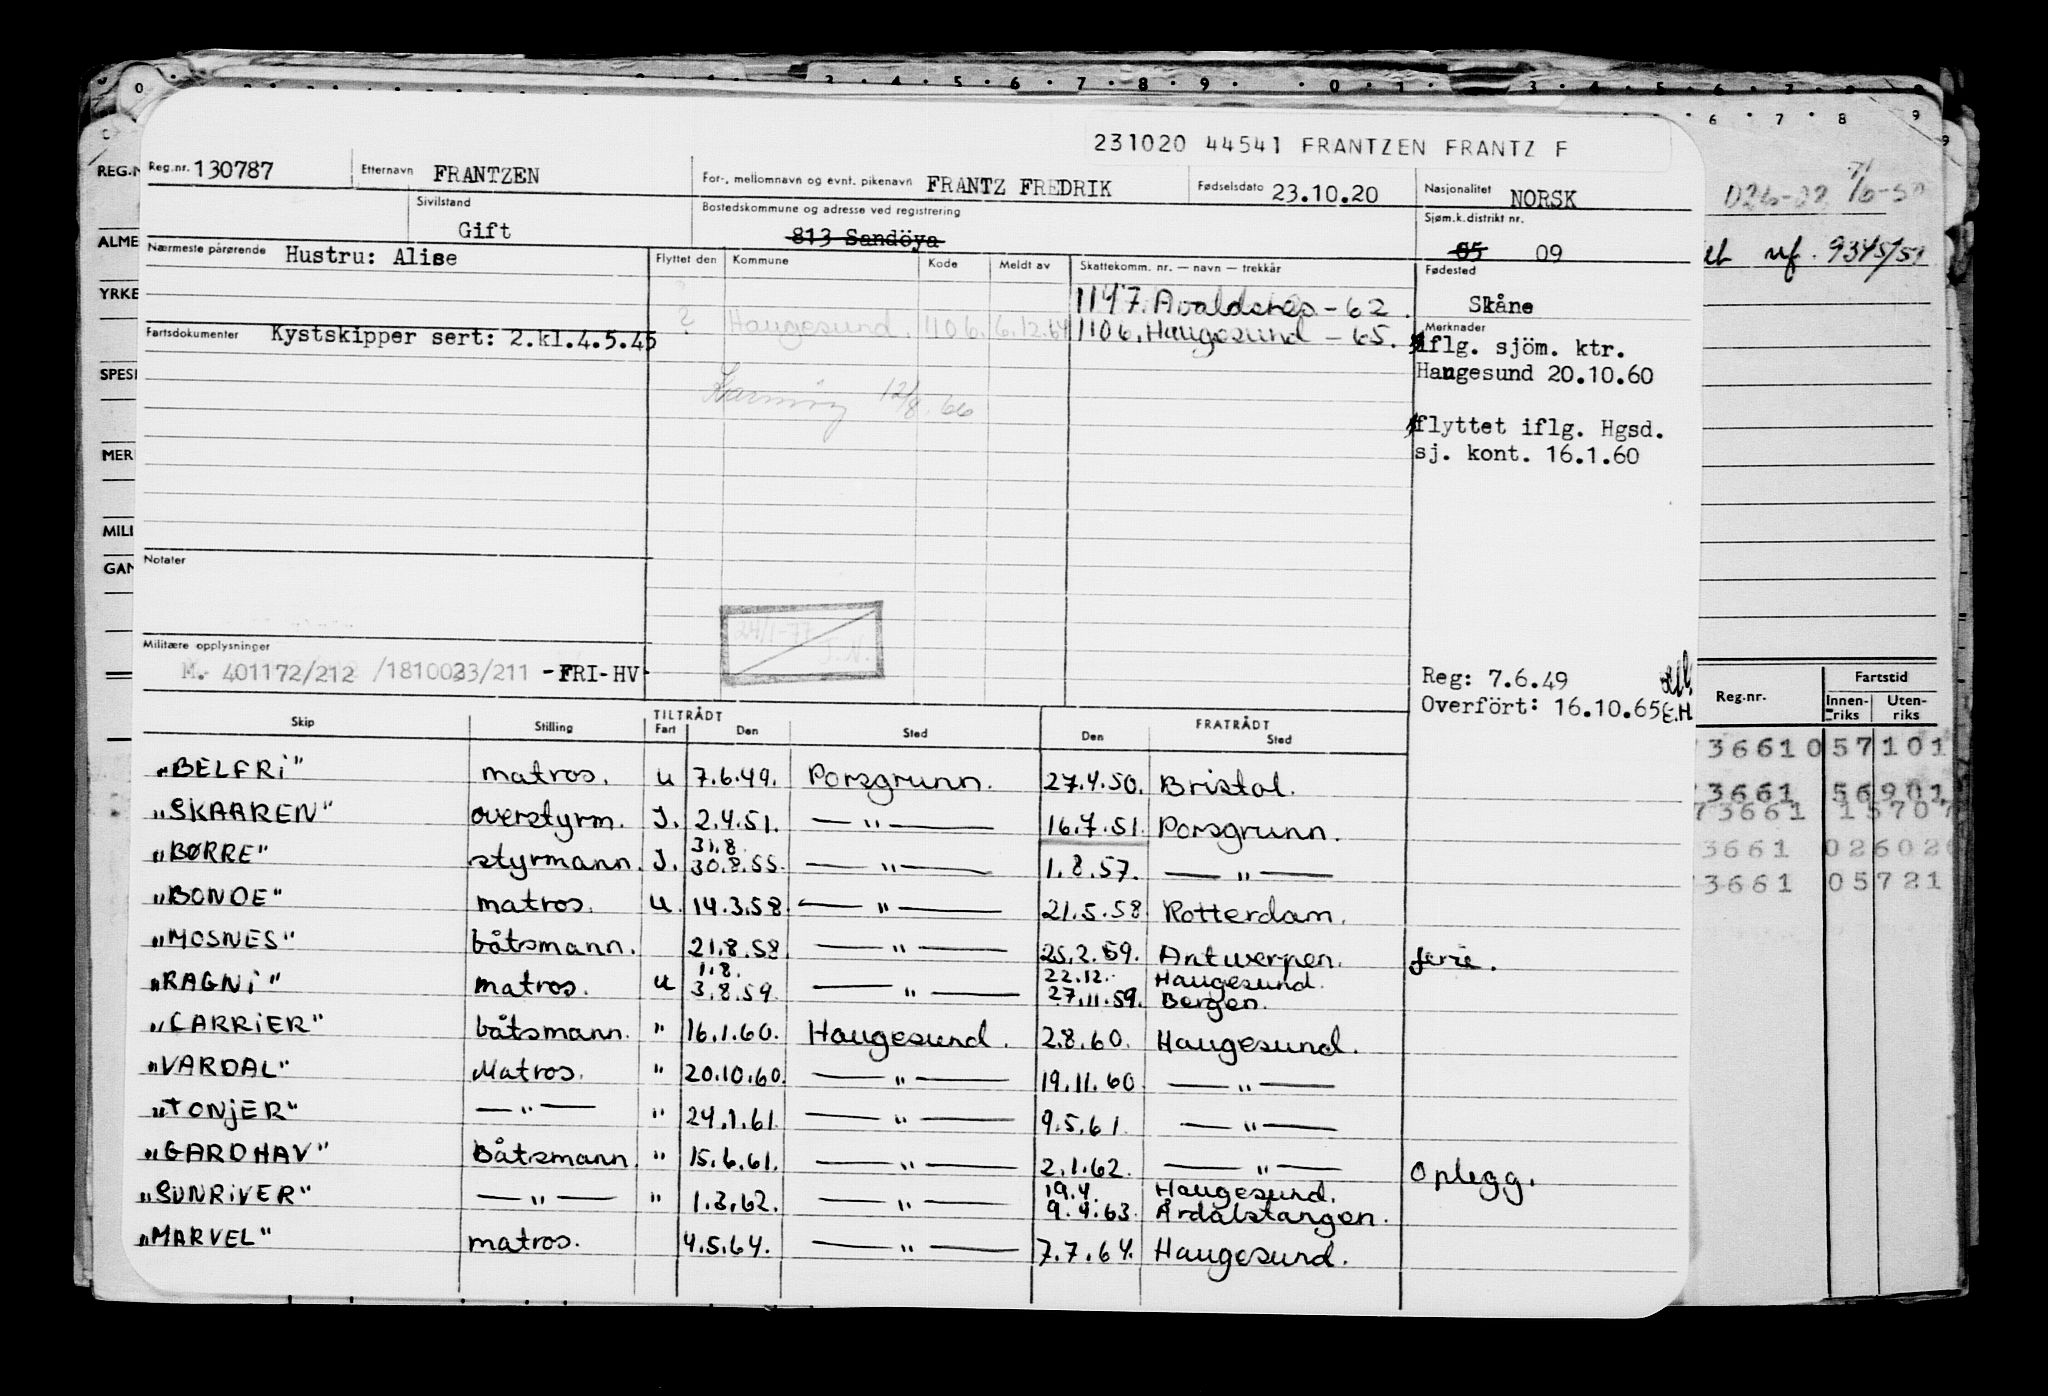 231020 44541 FRANTZEN FRANTZ F
Reg.nr. 130787 Etternavn FRANTZEN For-, mellomnavn og evnt. pikenavn FRANTZ FREDRIK Fødselsdato 23.10.20 Nasjonalitet NORSK
Sivilstand Gift Bostedskommune og adresse ved registrering 813 Sandöya Sjøm.k.distrikt nr. 05 09
Nærmeste pårørende Hustru: Alise Flyttet den Kommune Kode Meldt av Skattekomm. nr. — navn — trekkår Fødested
1147. Avaldsnes - 62. Skåne
? Haugesund. 1106. 6.12.64 1106. Haugesund - 65.
Fartsdokumenter Kystskipper sert: 2.kl.4.5.45
Merknader
iflg. sjöm. ktr.
Haugesund 20.10.60
Karmøy 12/8.66
flyttet iflg. Hgsd.
sj. kont. 16.1.60
Notater
24/1-77
J.N.
Militære opplysninger
M.- 401172/212 /1810033/211 -FRI-HV-
Reg: 7.6.49
Overfört: 16.10.65 E.H
Skip Stilling TILTRÅDT Fart Den Sted FRATRÅDT Den Sted
"BELFRI" matros. u 7.6.49. Porsgrunn. 27.4.50. Bristol.
"SKAAREN" overstyrm. I. 2.4.51. — " — 16.7.51. Porsgrunn.
31.8.
"BØRRE" styrmann. I. 30.8.55. — " — 1.8.57. — " —
"BONDE" matros. u. 14.3.58. — " — 21.5.58 Rotterdam.
"MOSNES" båtsmann. 21.8.58. — " — 25.2.59. Antwerpen. ferie.
1.8. 22.12. Haugesund.
"RAGNI" matros. u 3.8.59. — " — 27.11.59. Bergen.
"CARRIER" båtsmann. " 16.1.60. Haugesund. 2.8.60. Haugesund.
"VARDAL" Matros. " 20.10.60. — " — 19.11.60 — " —
"TONJER" — " — " 24.1.61. — " — 9.5.61. — " —
"GARDHAV" Båtsmann. " 15.6.61. — " — 2.1.62. — " — Oplegg.
19.4. Haugesund.
"SUNRIVER" — " — " 1.3.62. — " — 9.4.63. Årdalstangen.
"MARVEL" matros. 4.5.64. — " — 7.7.64. Haugesund.
REG.N
ALME
YRKE
SPESI
MER
MILI
GAN
nf. 9345/51
Reg.nr. Fartstid
Innenriks Utenriks
73661 057101
73661 56901
73661 15707
3661 02602
3661 05721